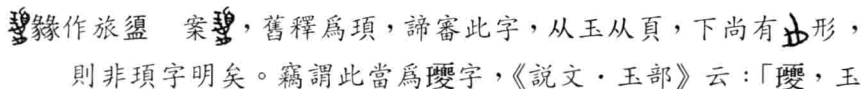 䝘作旅𥂴　案，舊釋爲頊，諦審此字，从玉从頁，下尚有形，
則非頊字明矣。竊謂此當爲瓇字，《説文·玉部》云：「瓇，玉